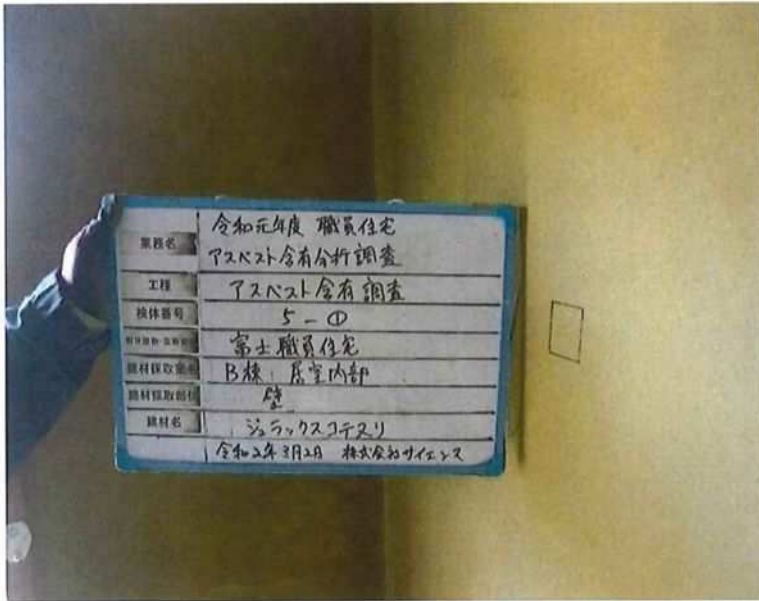 業務名 令和元年度 職員住宅
アスベスト含有分析調査
工程 アスベスト含有調査
検体番号 5-①
富士職員住宅
建材採取室名 B棟 居室内部
建材採取部位 壁
建材名 ジュラックスコテヌリ
令和2年3月2日 株式会社サイエンス